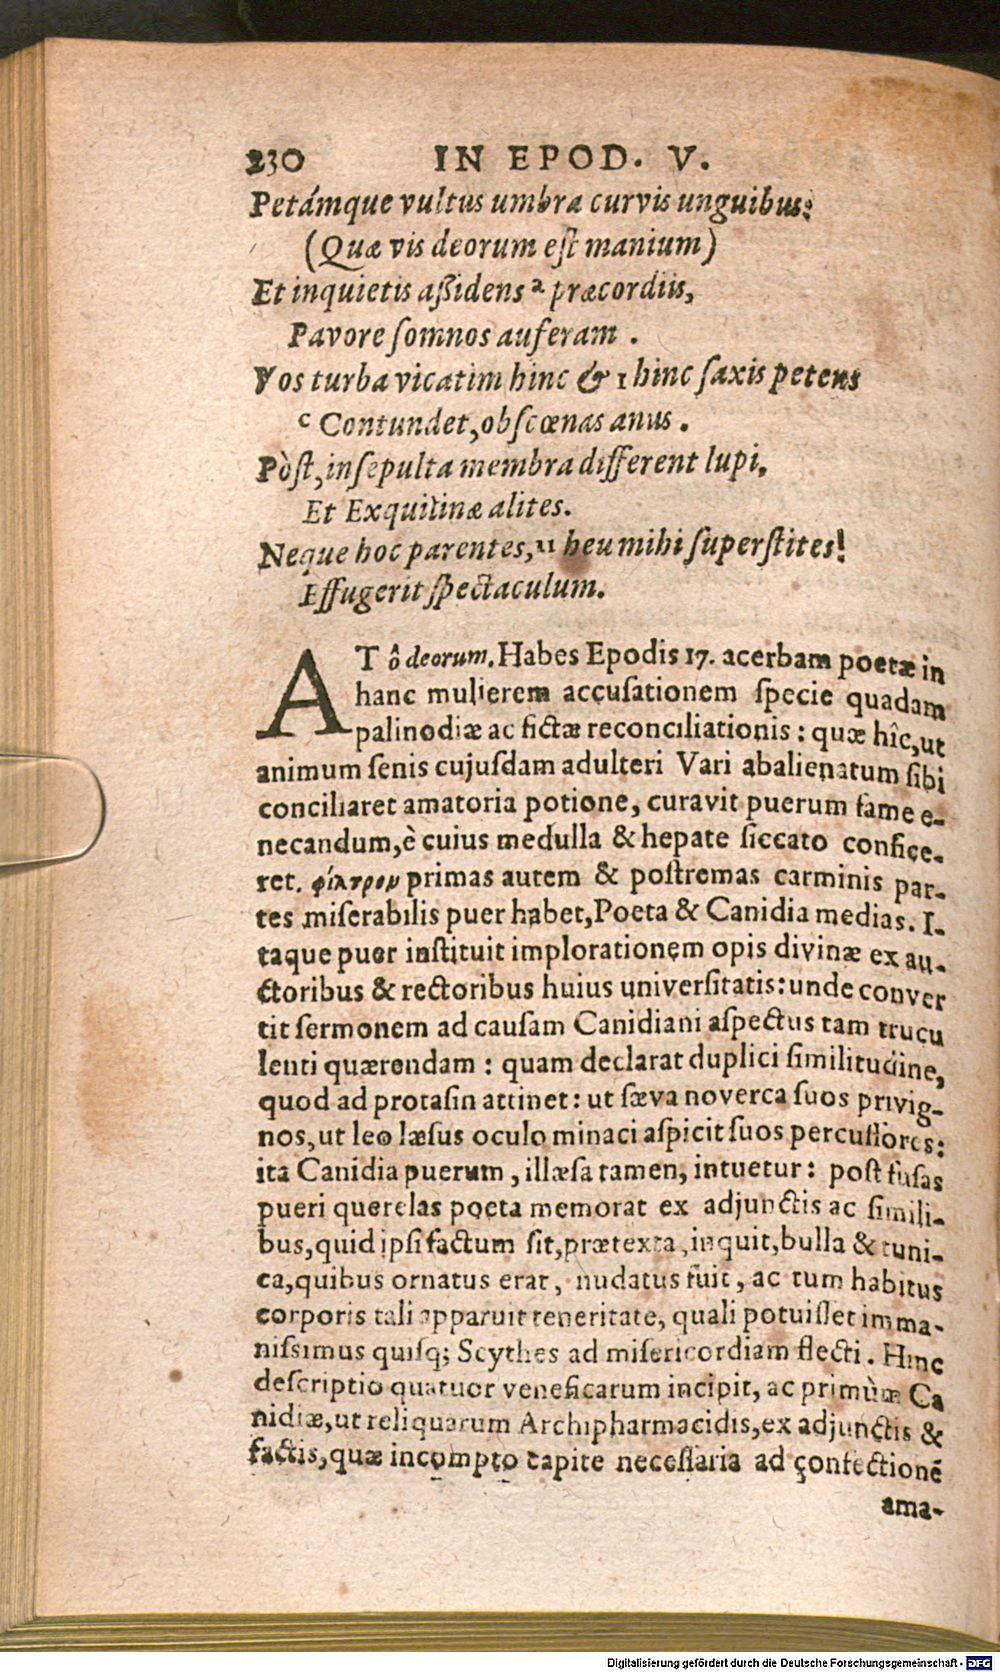 230 IN EPOD. V.
Petámque vultus umbra curvis unguibus:
(Quæ vis deorum eſt manium)
Et inquietis aßidens ² præcordiis,
Pavore ſomnos auferam .
Vos turba vicatim hinc & 1 hinc ſaxis petens
c Contundet, obſcœnas anus .
Pòſt, inſepulta membra different lupi,
Et Exquilinæ alites.
Neque hoc parentes, 11 heu mihi ſuperſtites!
Effugerit ſpectaculum.
AT ô deorum. Habes Epodis 17. acerbam poetæ in
hanc mulierem accuſationem ſpecie quadam
palinodiæ ac fictæ reconciliationis : quæ hîc, ut
animum ſenis cujuſdam adulteri Vari abalienatum ſibi
conciliaret amatoria potione, curavit puerum fame e-
necandum, è cuius medulla & hepate ſiccato confice-
ret. φίλτρον primas autem & poſtremas carminis par-
tes miſerabilis puer habet, Poeta & Canidia medias. I-
taque puer inſtituit implorationem opis divinæ ex au-
ctoribus & rectoribus huius univerſitatis: unde conver
tit ſermonem ad cauſam Canidiani aſpectus tam trucu
lenti quærendam : quam declarat duplici ſimilitudine,
quod ad protaſin attinet: ut ſæva noverca ſuos privig-
nos, ut leo læſus oculo minaci aſpicit ſuos percuſſores:
ita Canidia puerum, illæſa tamen, intuetur: poſt fuſas
pueri querelas poeta memorat ex adjunctis ac ſimili-
bus, quid ipſi factum ſit, prætexta, inquit, bulla & tuni-
ca, quibus ornatus erat, nudatus fuit, ac tum habitus
corporis tali apparuit teneritate, quali potuiſſet imma-
niſsimus quiſq; Scythes ad miſericordiam flecti. Hinc
deſcriptio quatuor veneficarum incipit, ac primùm Ca
nidiæ, ut reliquarum Archipharmacidis, ex adjunctis &
factis, quæ incompto capite neceſſaria ad confectionē
ama-
Digitalisierung gefördert durch die Deutsche Forschungsgemeinschaft - DFG